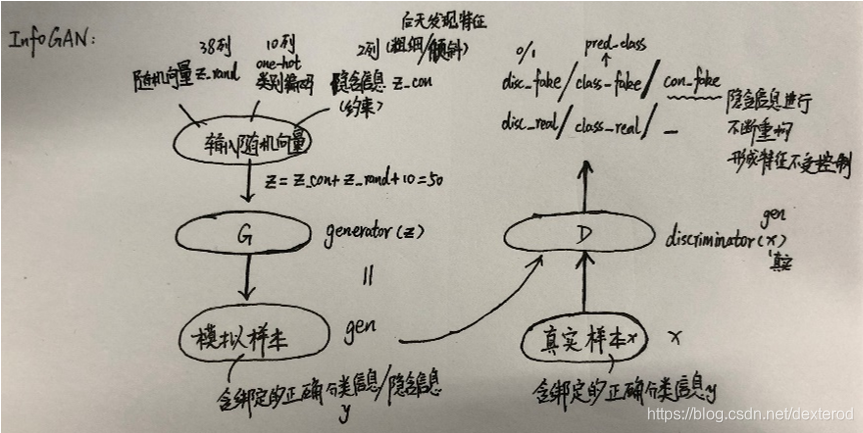 InfoGAN:
38列
随机向量 z_rand
10列
one-hot
类别编码
后天发现特征
2列 (粗细/倾斜)
隐含信息 z_con
(约束)
输入随机向量
z = z_con + z_rand + 10 = 50
G
generator(z)
=
模拟样本
gen
含绑定的正确分类信息/隐含信息
y
0/1
pred_class
disc_fake/class-fake/con_fake
disc_real/class-real/—
隐含信息进行
不断重构
形成特征不受控制
D
gen
discriminator(x)
真实
真实样本x
x
含绑定的正确分类信息y
https://blog.csdn.net/dexterod